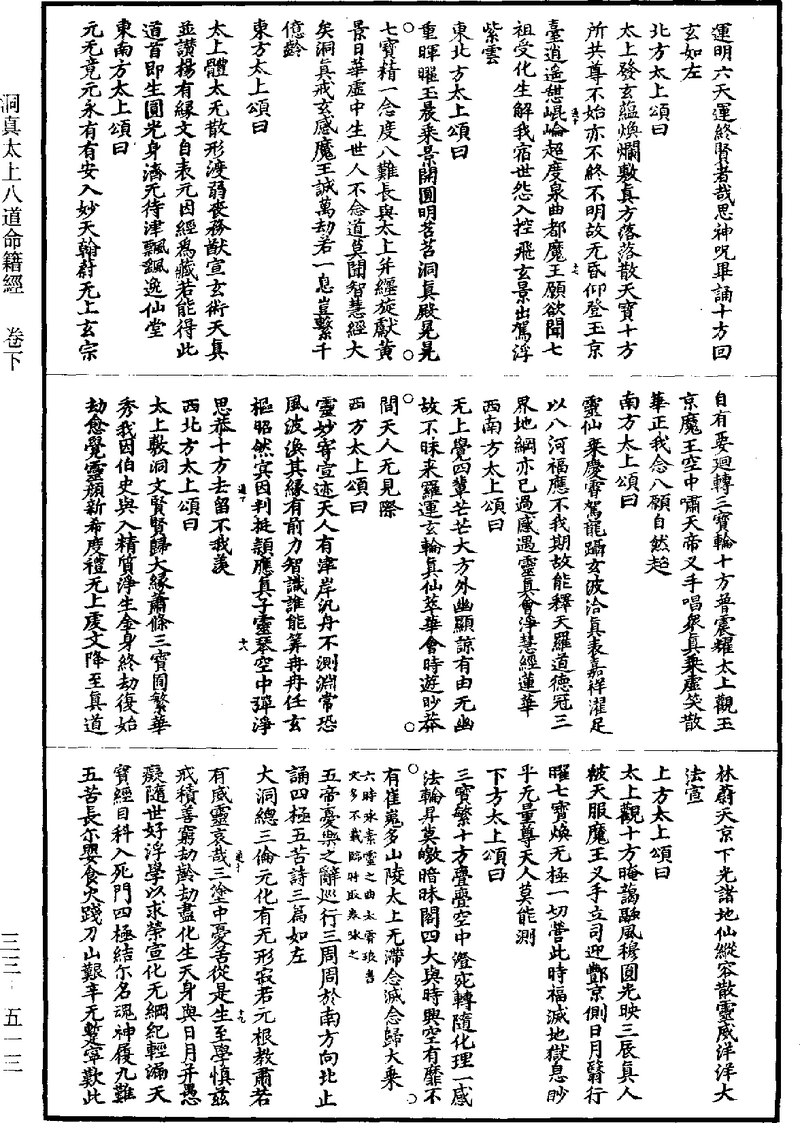 運明六天運終賢者哉思神呪畢誦十方回
玄如左
北方太上頌曰
太上發玄蘊煥爛敷真方落落散天寶十方
所共尊不始亦不終不明故无昏仰登玉京
臺逍遙憩崐崘超度泉曲都魔王願欲聞七
祖受化生解我宿世怨入控飛玄景出駕浮
紫雲
東北方太上頌曰
重暉曜玉晨乘景開圓明苕苕洞真殿晃晃
七寶精一念度八難長與太上并經旋獻黃
景日華虛中生世人不念道莫聞智慧經大
矣洞真戒玄感魔王誠萬劫若一息豈繫千
億齡
東方太上頌曰
太上體太无散形渡弱喪務猷宣玄術天真
並讚揚有緣文自表元因經為藏若能得此
道首即生圓光身濟无待津飄飄逸仙堂
東南方太上頌曰
元无竟元永有有安入妙天翰蔚无上玄宗
自有要迴轉三寶輪十方普震耀太上觀玉
京魔王空中嘯天帝叉手唱衆真乘虛笑散
華正我念八願自然超
南方太上頌曰
靈仙乘慶霄駕龍躡玄波洽真表嘉祥濯足
以八河福應不我期故能釋天羅道德冠三
界地網亦已過感遇靈真會淨慧經蓮華
西南方太上頌曰
无上覺四輩茫茫大方外幽顯諒有由无幽
故不昧来羅運玄輪真仙萃華會時遊眇莽
間天人无見際
西方太上頌曰
靈妙寄宣迹天人有津岸汎舟不測淵常恐
風波渙其緣有前力智識誰能筭冉冉任玄
樞昭然㝠因判挺穎應真子靈琴空中彈淨
思恭十方去留不我羨
西北方太上頌曰
太上敷洞文賢賢歸大緣蕭條三寶囿繁華
秀我因伯史與入精質淨生金身終劫復始
劫愈覺靈顏新希度禮无上虔文降至真道
林蔚天京下光諸地仙縱容散靈威洋洋大
法宣
上方太上頌曰
太上觀十方晻藹融風穆圓光映三辰真人
被天服魔王叉手立司迎酆京側日月翳行
曜七寶煥无極一切營此時福滅地獄息眇
乎无量尊天人莫能測
下方太上頌曰
三寶繁十方亹亹空中澄宛轉隨化理一感
法輪昇莫皦暗昧閣四大與時興空有靡不
有崔嵬多山陵太上无滯念滅念歸大乘
六時咏素靈之曲太霄琅書
文多不載臨時取卷咏之
五帝憂樂之辭巡行三周周於南方向北止
誦四極五苦詩三篇如左
大洞總三倫元化有无形寂君元根教肅若
有威靈哀哉三塗中憂苦從是生至學慎兹
戒積善窮劫齡劫盡化生天身與日月并愚
癡隨世好浮學以求榮宣化无綱紀輕漏天
寶經目科入死門四極結尓名魂神履九難
五苦長尓嬰食火踐刀山艱辛无蹔寧歎此
洞真太上八道命籍經　卷下
三三·五一三